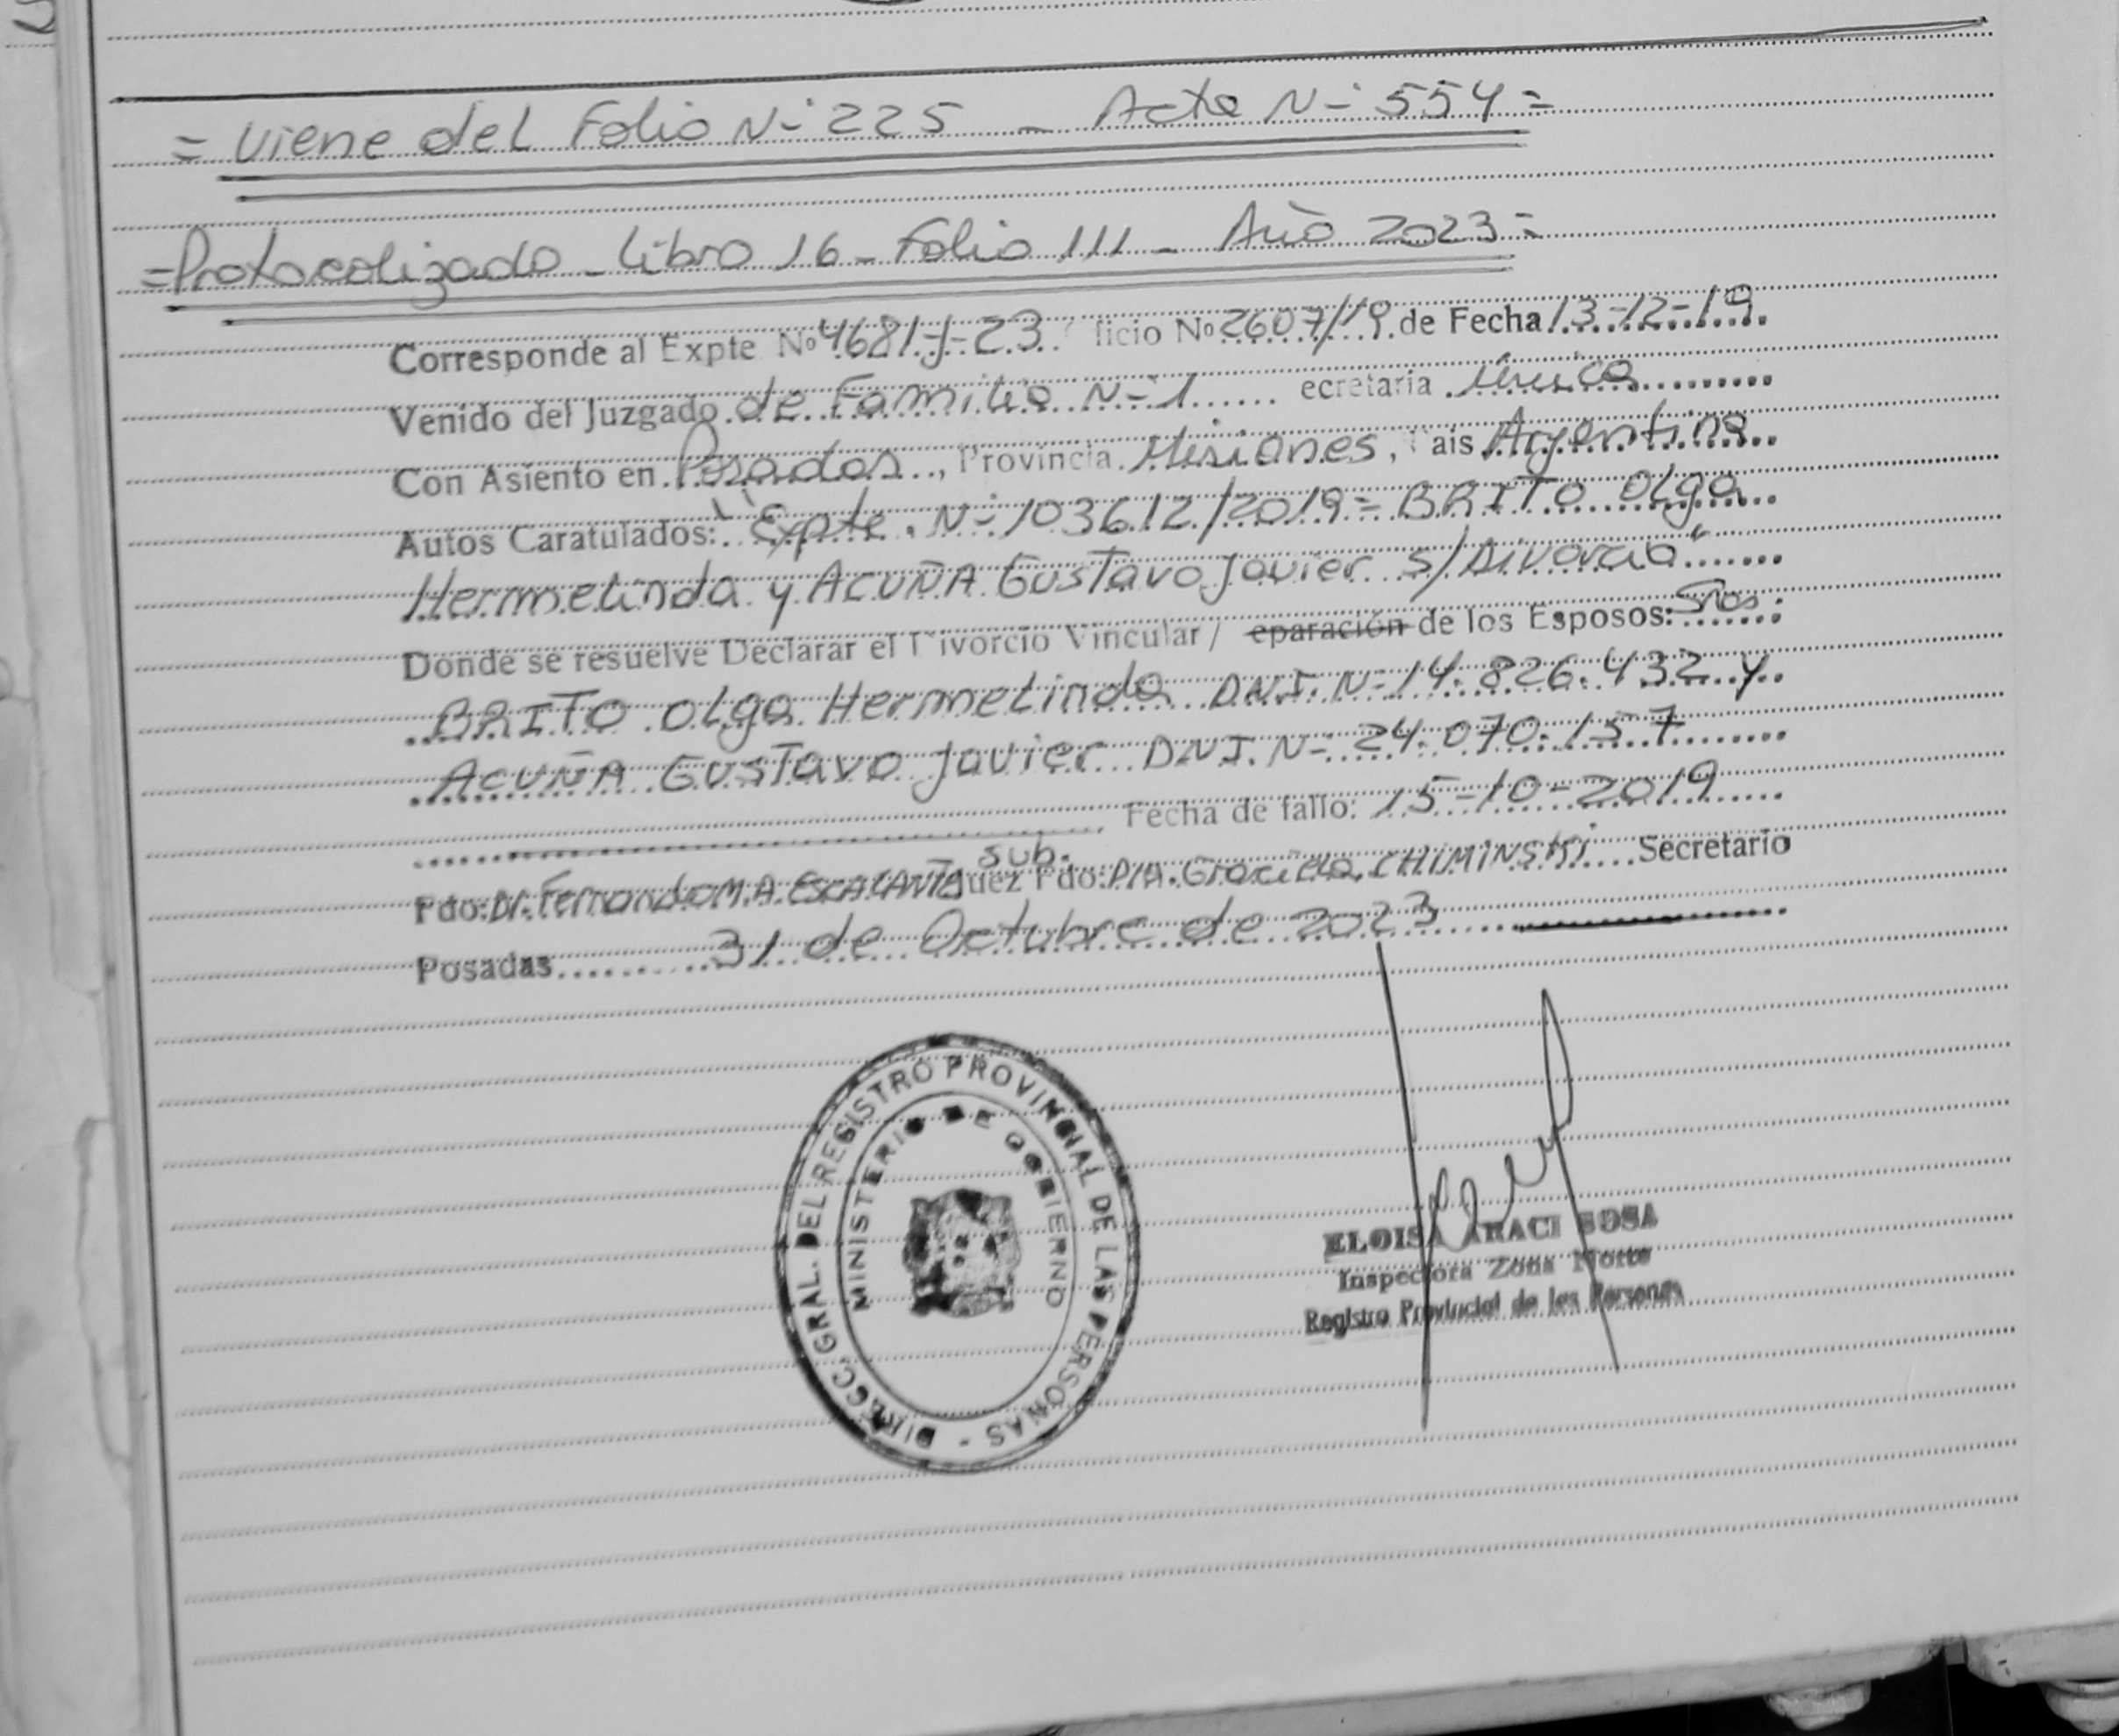 = Viene del Folio N- 225 - Acta N- 554 =
= Protocolizado - Libro 16 - Folio 111 - Año 2023 =
Corresponde al Expte Nº 4681-J-23 ficio Nº 2607/19 de Fecha 13-12-19.
Venido del Juzgado de Familia N-1...... ecretaria única.........
Con Asiento en Posadas.., Provincia Misiones, ais Argentina..
Autos Caratulados: "Expte. N- 103612/2019 = BRITO Olga...
Hermelinda y ACUÑA Gustavo Javier s/Divorcio".......
Donde se resuelve Declarar el Divorcio Vincular / eparación de los Esposos: Sres:
BRITO Olga Hermelinda DNI. N- 14.826.432 y.
ACUÑA Gustavo Javier DNI. N- 24.070.157........
Fecha de fallo: 15-10-2019.....
Fdo: Dr. Fernando M.A. ESCALANTE Juez Fdo: Dra. Graciela CHIMINSKI.... Sub. Secretario
Posadas.......... 31 de Octubre de 2023
DIRECC. GRAL. DEL REGISTRO PROVINCIAL DE LAS PERSONAS -
MINISTERIO DE GOBIERNO
ELOISA ARACI SOSA
Inspectora Zona Norte
Registro Provincial de las Personas